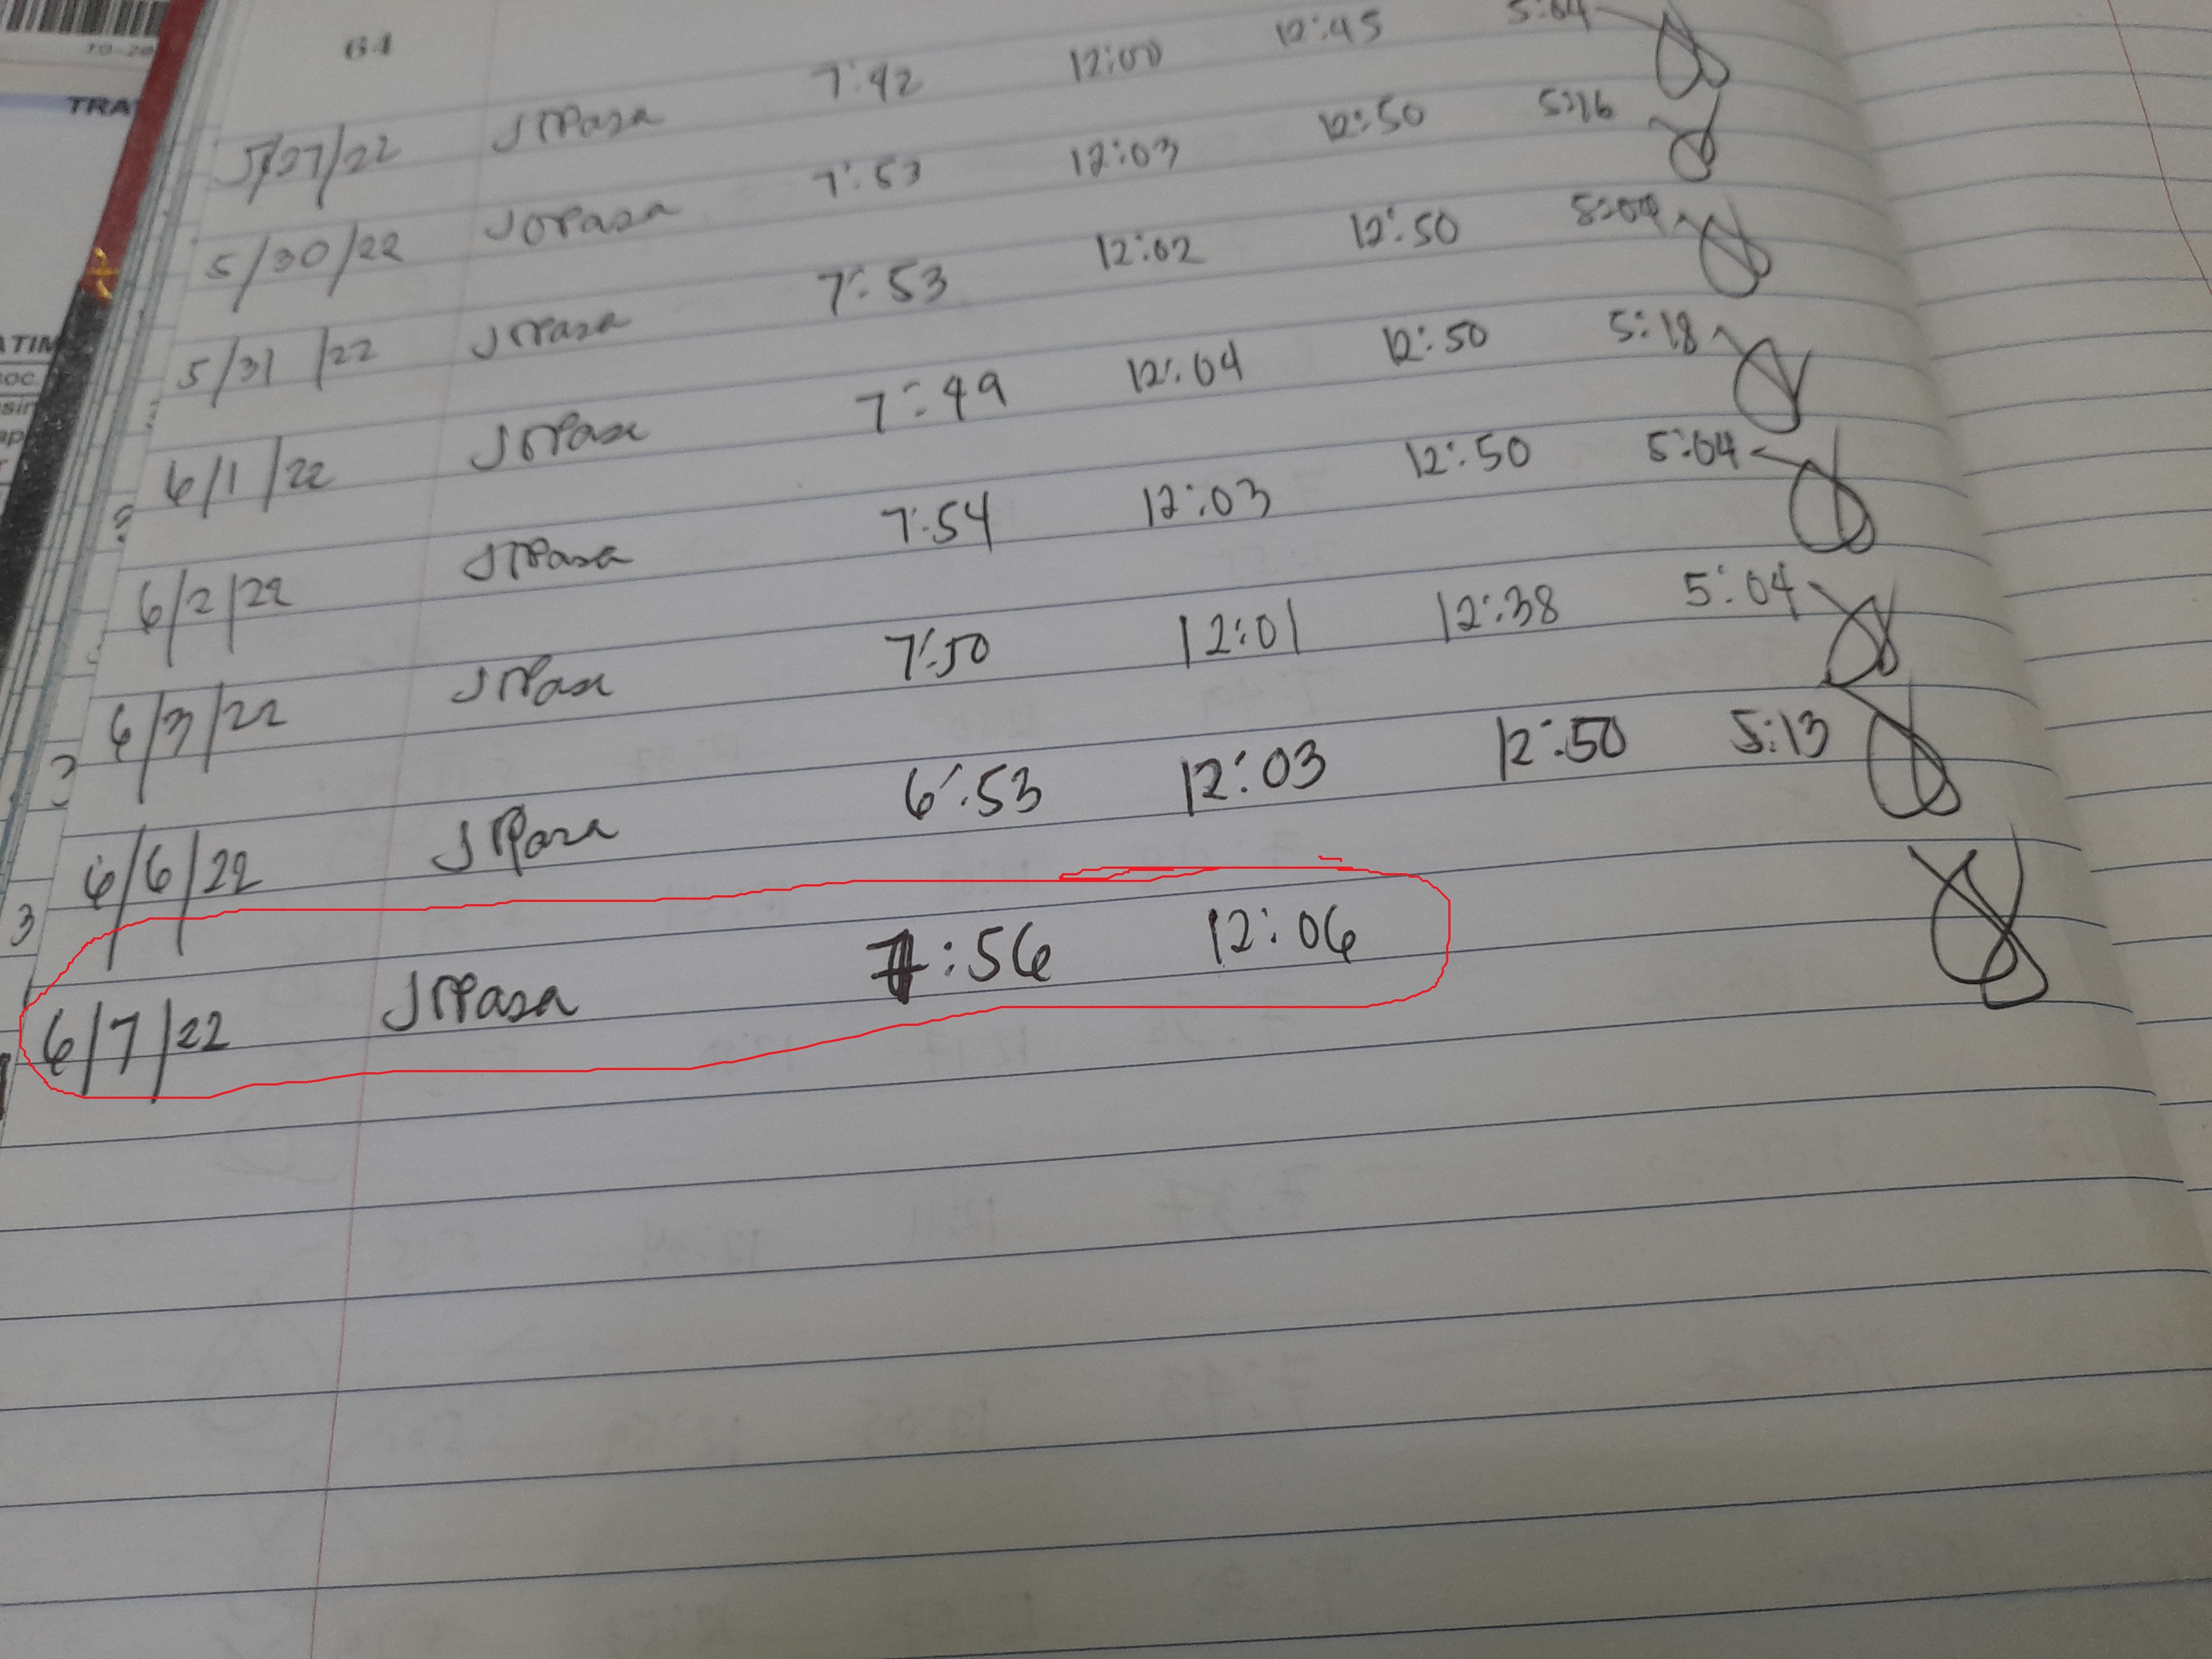 TO-20
64
TRA
5/27/22 JOPasa 7:42 12:00 12:45 5:04
5/30/22 JOPasa 7:53 12:03 12:50 5:16
5/31/22 JOPasa 7:53 12:02 12:50
6/1/22 JOPasa 7:49 12:04 12:50 5:18
6/2/22 JOPasa 7:54 12:03 12:50 5:04
6/3/22 JOPasa 7:50 12:01 12:38 5:04
6/6/22 JOPasa 6:53 12:03 12:50 5:13
6/7/22 JOPasa 7:56 12:06